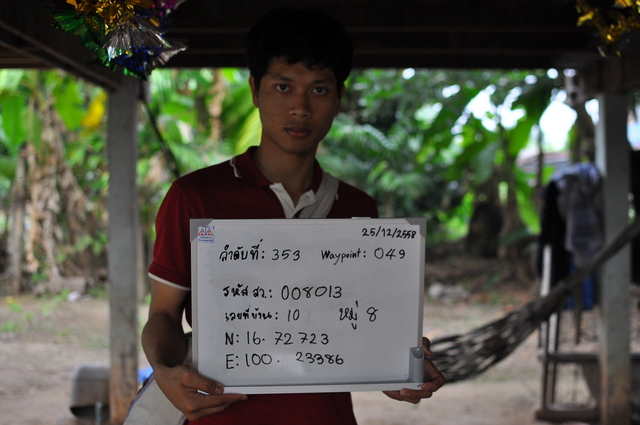 25/12/2558
ลำดับที่: 353 Waypoint: 049
รหัส สว.: 008013
เลขที่บ้าน: 10 หมู่ 8
N: 16. 72723
E: 100. 23386